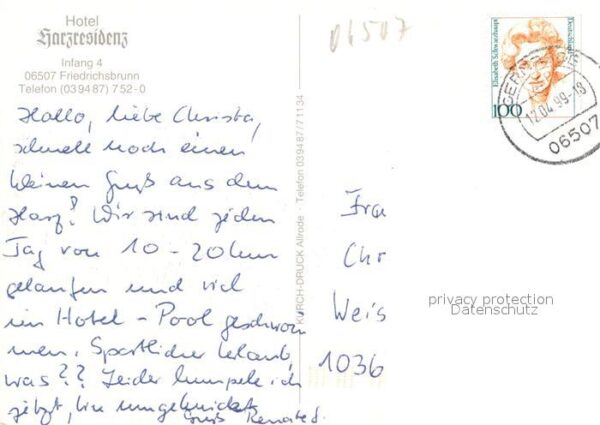 Hotel
Harzresidenz
Infang 4
06507 Friedrichsbrunn
Telefon (03 94 87) 7 52 - 0
06507
Hallo, liebe Christa,
schnell noch einen
kleinen Gruß aus dem
Harz! Wir sind jeden
Tag von 10 - 20 km
gelaufen und viel
im Hotel - Pool geschwom
men. Sportlicher Urlaub,
was?? Leider humpele ich
jetzt, bin umgeknickt.
Gruß Renate
KÜRCH-DRUCK Allrode · Telefon 039487/71134
Elisabeth Schwarzhaupt
Deutschland
100
12.04.99-18
06507
Frau
Chr
Weis
1036
privacy protection
Datenschutz